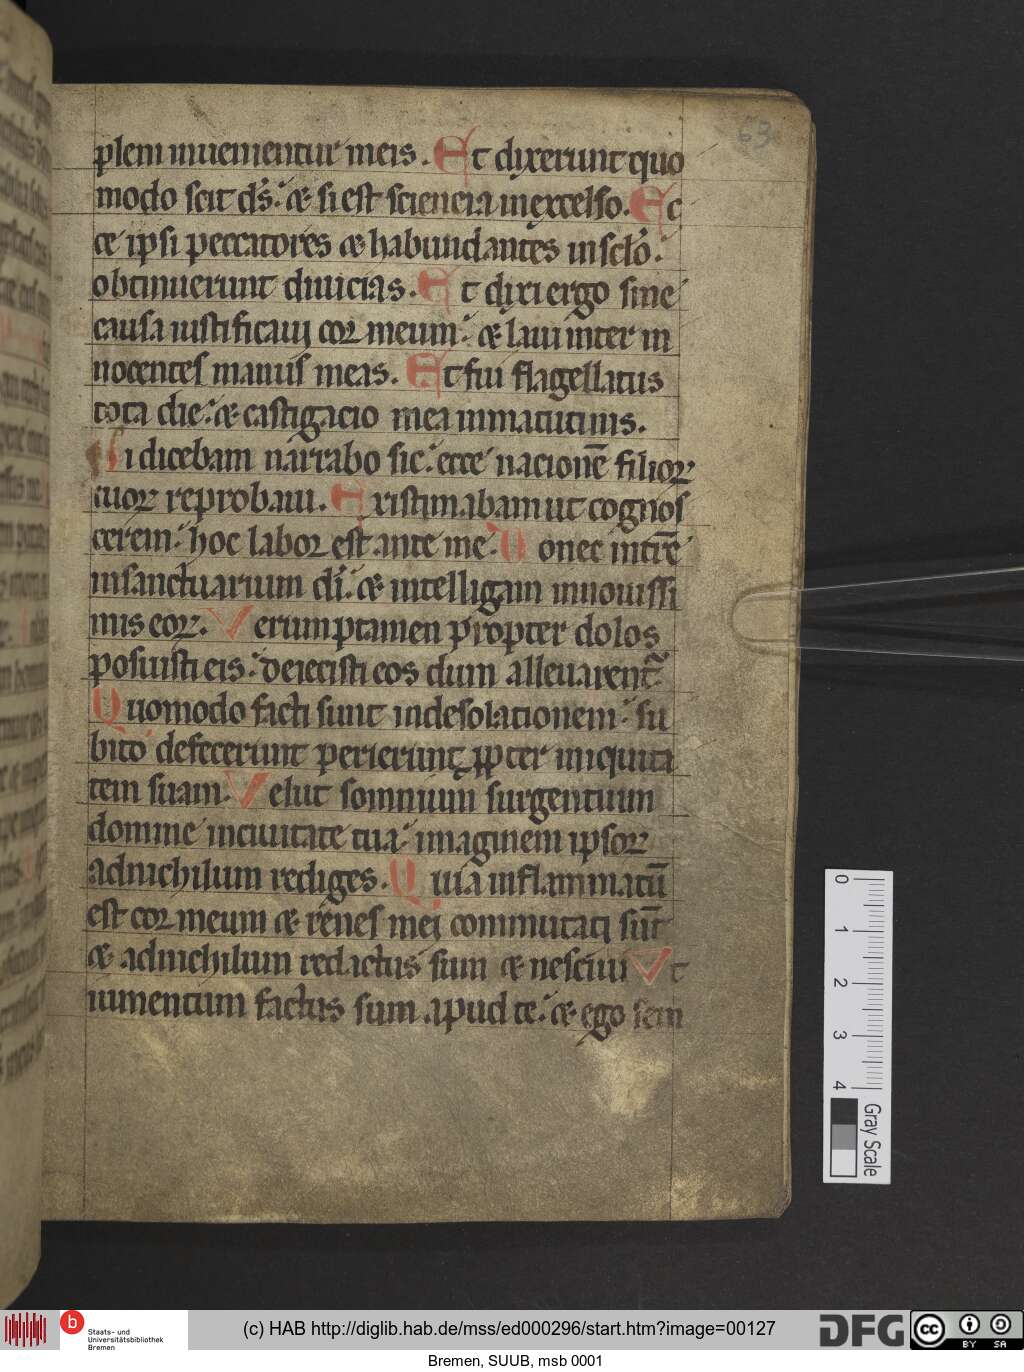 63
pleni inuenientur meis. Et dixerunt quo
modo scit ds̄: & si est sciencia inexcelso. Ec
ce ipsi peccatores & habundantes insclo̅:
obtinuerunt diuicias. Et dixi ergo sine
causa iustificaui cor meum: & laui inter in
nocentes manus meas. Et fui flagellatus
tota die: & castigacio mea inmatutinis.
Si dicebam narrabo sic: ecce nacionē filioꝝ
tuoꝝ reprobaui. Existimabam ut cognos
cerem: hoc labor est ante me: Donec intrē
insanctuarium di̅: & intelligam innouissi
mis eoꝝ. Verumptamen propter dolos
posuisti eis: deiecisti eos dum alleuarent᷑
Quomodo facti sunt indesolationem: su
bito defecerunt perierunt ꝓpter iniquita
tem suam. Velut somnium surgentium
domine inciuitate tua: imaginem ipsoꝝ
adnichilum rediges. Quia inflammatū
est cor meum & renes mei commutati sūt
& adnichilum redactus sum & nesciui Vt
iumentum factus sum apud te: & ego sem
0
1
2
3
4
Gray Scale
b
Staats- und
Universitätsbibliothek
Bremen
(c) HAB http://diglib.hab.de/mss/ed000296/start.htm?image=00127
DFG
cc
BY SA
Bremen, SUUB, msb 0001